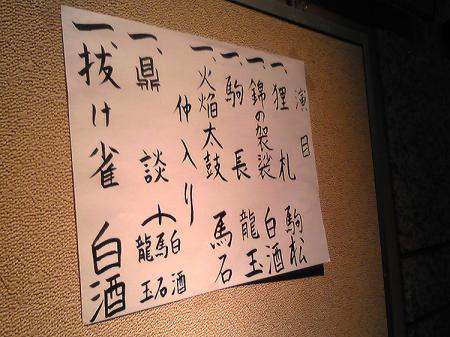 演目
一、狸札 駒松
一、錦の袈裟 白酒
一、駒長 龍玉
一、火焔太鼓 馬石
仲入り
一、鼎談 白酒 馬石 龍玉
一、抜け雀 白酒